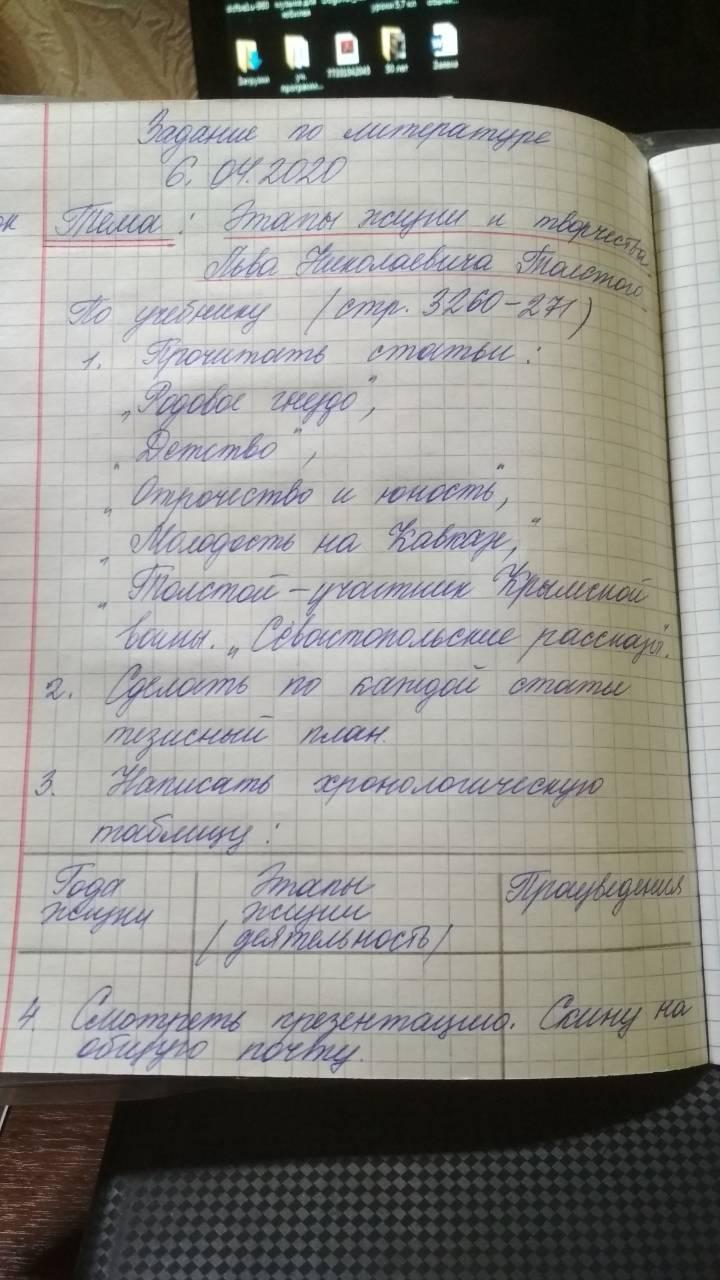 музыка для
юбилея
уроки 5,7 кл
Загрузки
уч.
програм...
30 лет
Замена
Задание по литературе
6. 04. 2020
Тема: Этапы жизни и творчества
Льва Николаевича Толстого.
По учебнику (стр. 3260-271)
1. Прочитать статьи:
„Родовое гнездо",
„Детство",
„Отрочество и юность",
„Молодость на Кавказе,"
„Толстой – участник Крымской
войны. „Севастопольские рассказы".
2. Сделать по каждой статье
тезисный план.
3. Написать хронологическую
таблицу:
Года
жизни
Этапы
жизни
(деятельность)
Произведения
4. Смотреть презентацию. Скину на
общую почту.